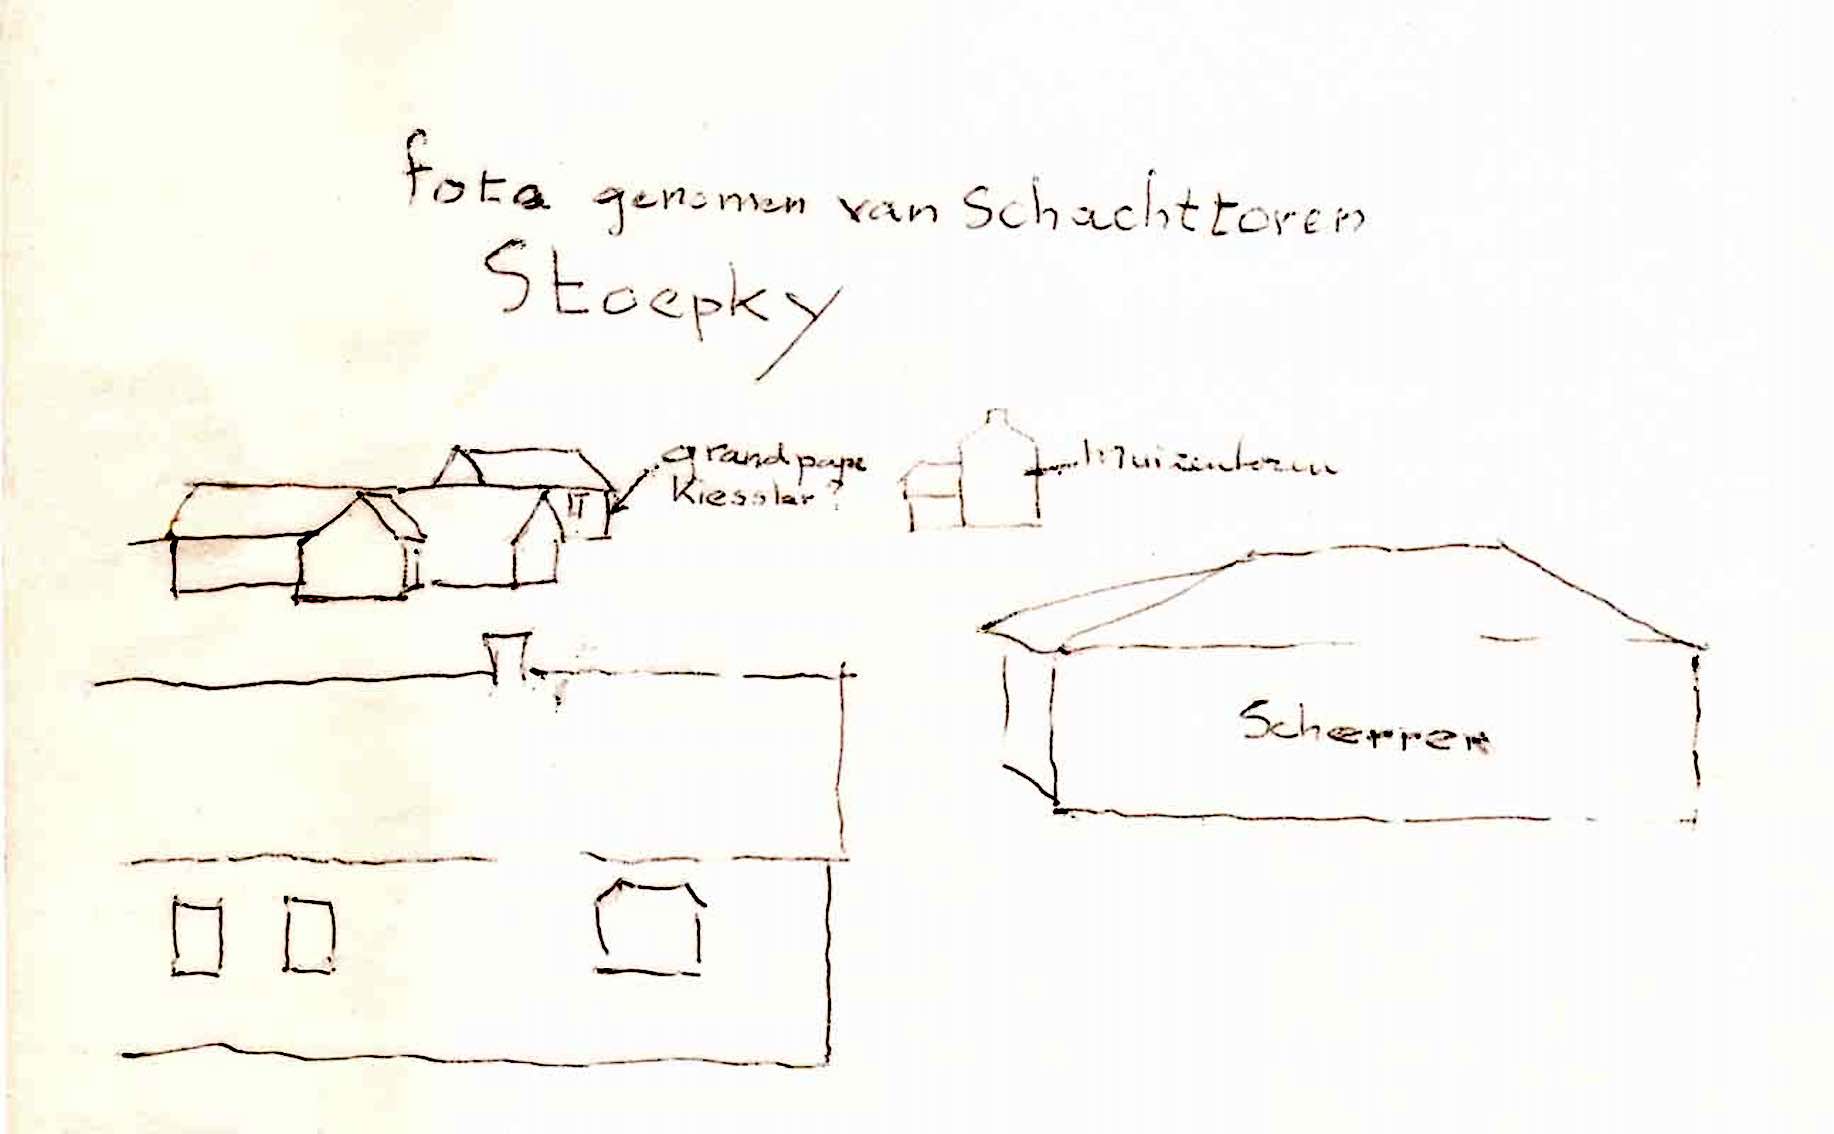 foto genomen van Schachttoren
Stoepky
grandpape
Kiessler?
Muizentoren
Scherrer